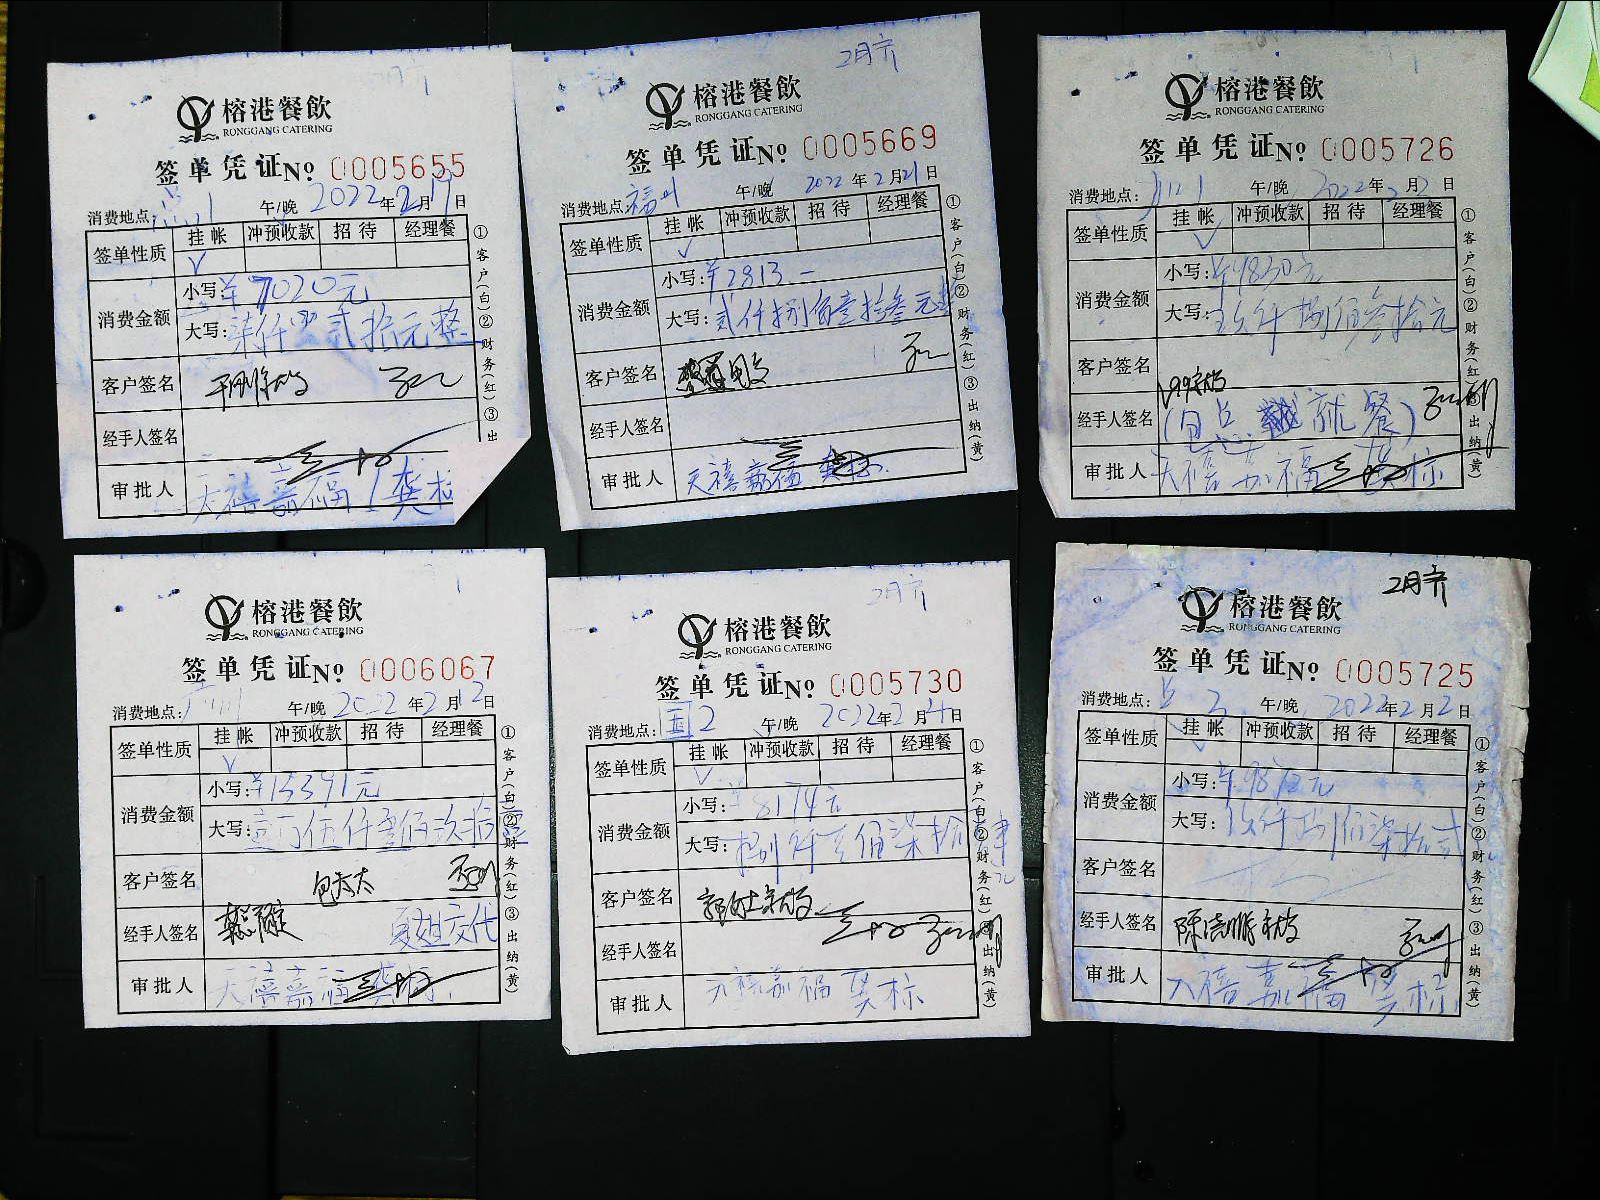 榕港餐飲
RONGGANG CATERING
签单凭证No 0005655
消费地点: 午/晚 2022年2月19日
签单性质 挂帐 冲预收款 招待 经理餐
消费金额
小写:¥7020元
大写:柒仟零贰拾元整
客户签名
经手人签名
审批人 天禧嘉福 龚标
①客户(白)②财务(红)③出
2月亓
榕港餐飲
RONGGANG CATERING
签单凭证No 0005669
消费地点:福州 午/晚 2022年2月21日
签单性质 挂帐 冲预收款 招待 经理餐
消费金额
小写:¥2813一
大写:贰仟捌佰壹拾叁元整
客户签名
经手人签名
审批人 天禧嘉福 龚标
①客户(白)②财务(红)③出纳(黄)
榕港餐飲
RONGGANG CATERING
签单凭证No 0005726
消费地点: 午/晚 2022年2月2日
签单性质 挂帐 冲预收款 招待 经理餐
消费金额
小写:¥9830元
大写:玖仟捌佰叁拾元
客户签名
经手人签名 就餐)
审批人 天禧嘉福 龚标
①客户(白)②财务(红)③出纳(黄)
榕港餐飲
RONGGANG CATERING
签单凭证No 0006067
消费地点:广州 午/晚 2022年2月12日
签单性质 挂帐 冲预收款 招待 经理餐
消费金额
小写:¥15391元
大写:壹万伍仟叁佰玖拾壹
客户签名 包太太
经手人签名 交代
审批人 天禧嘉福 龚标
①客户(白)②财务(红)③出纳(黄)
2月亓
榕港餐飲
RONGGANG CATERING
签单凭证No 0005730
消费地点:国2 午/晚 2022年2月4日
签单性质 挂帐 冲预收款 招待 经理餐
消费金额
小写:¥8174元
大写:捌仟壹佰柒拾肆元
客户签名
经手人签名
审批人 天禧嘉福 龚标
①客户(白)②财务(红)③出纳(黄)
2月亓
榕港餐飲
RONGGANG CATERING
签单凭证No 0005725
消费地点: 午/晚 2022年2月2日
签单性质 挂帐 冲预收款 招待 经理餐
消费金额
小写:¥9872元
大写:玖仟捌佰柒拾贰
客户签名
经手人签名
审批人 天禧嘉福 龚标
①客户(白)②财务(红)③出纳(黄)